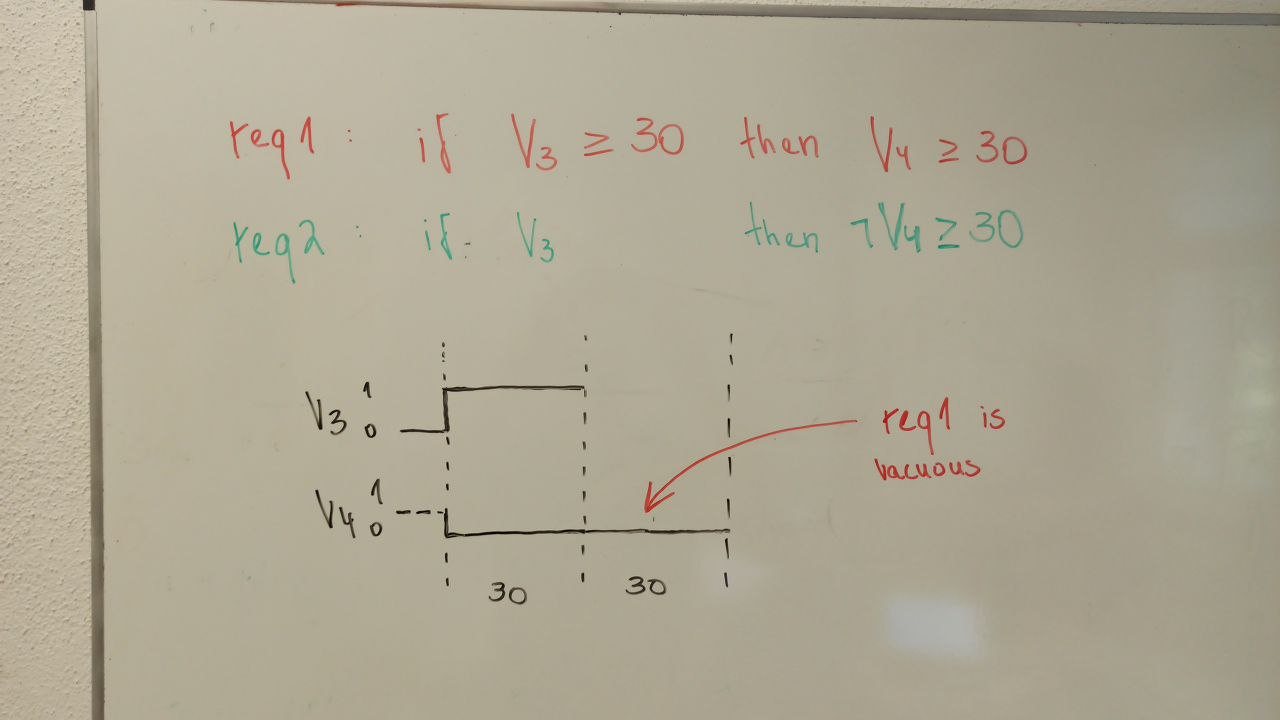 req1 : if V3 ≥ 30 then V4 ≥ 30
req2 : if V3 then ¬V4 ≥ 30
V3 1 0
V4 1 0
req1 is
vacuous
30 30